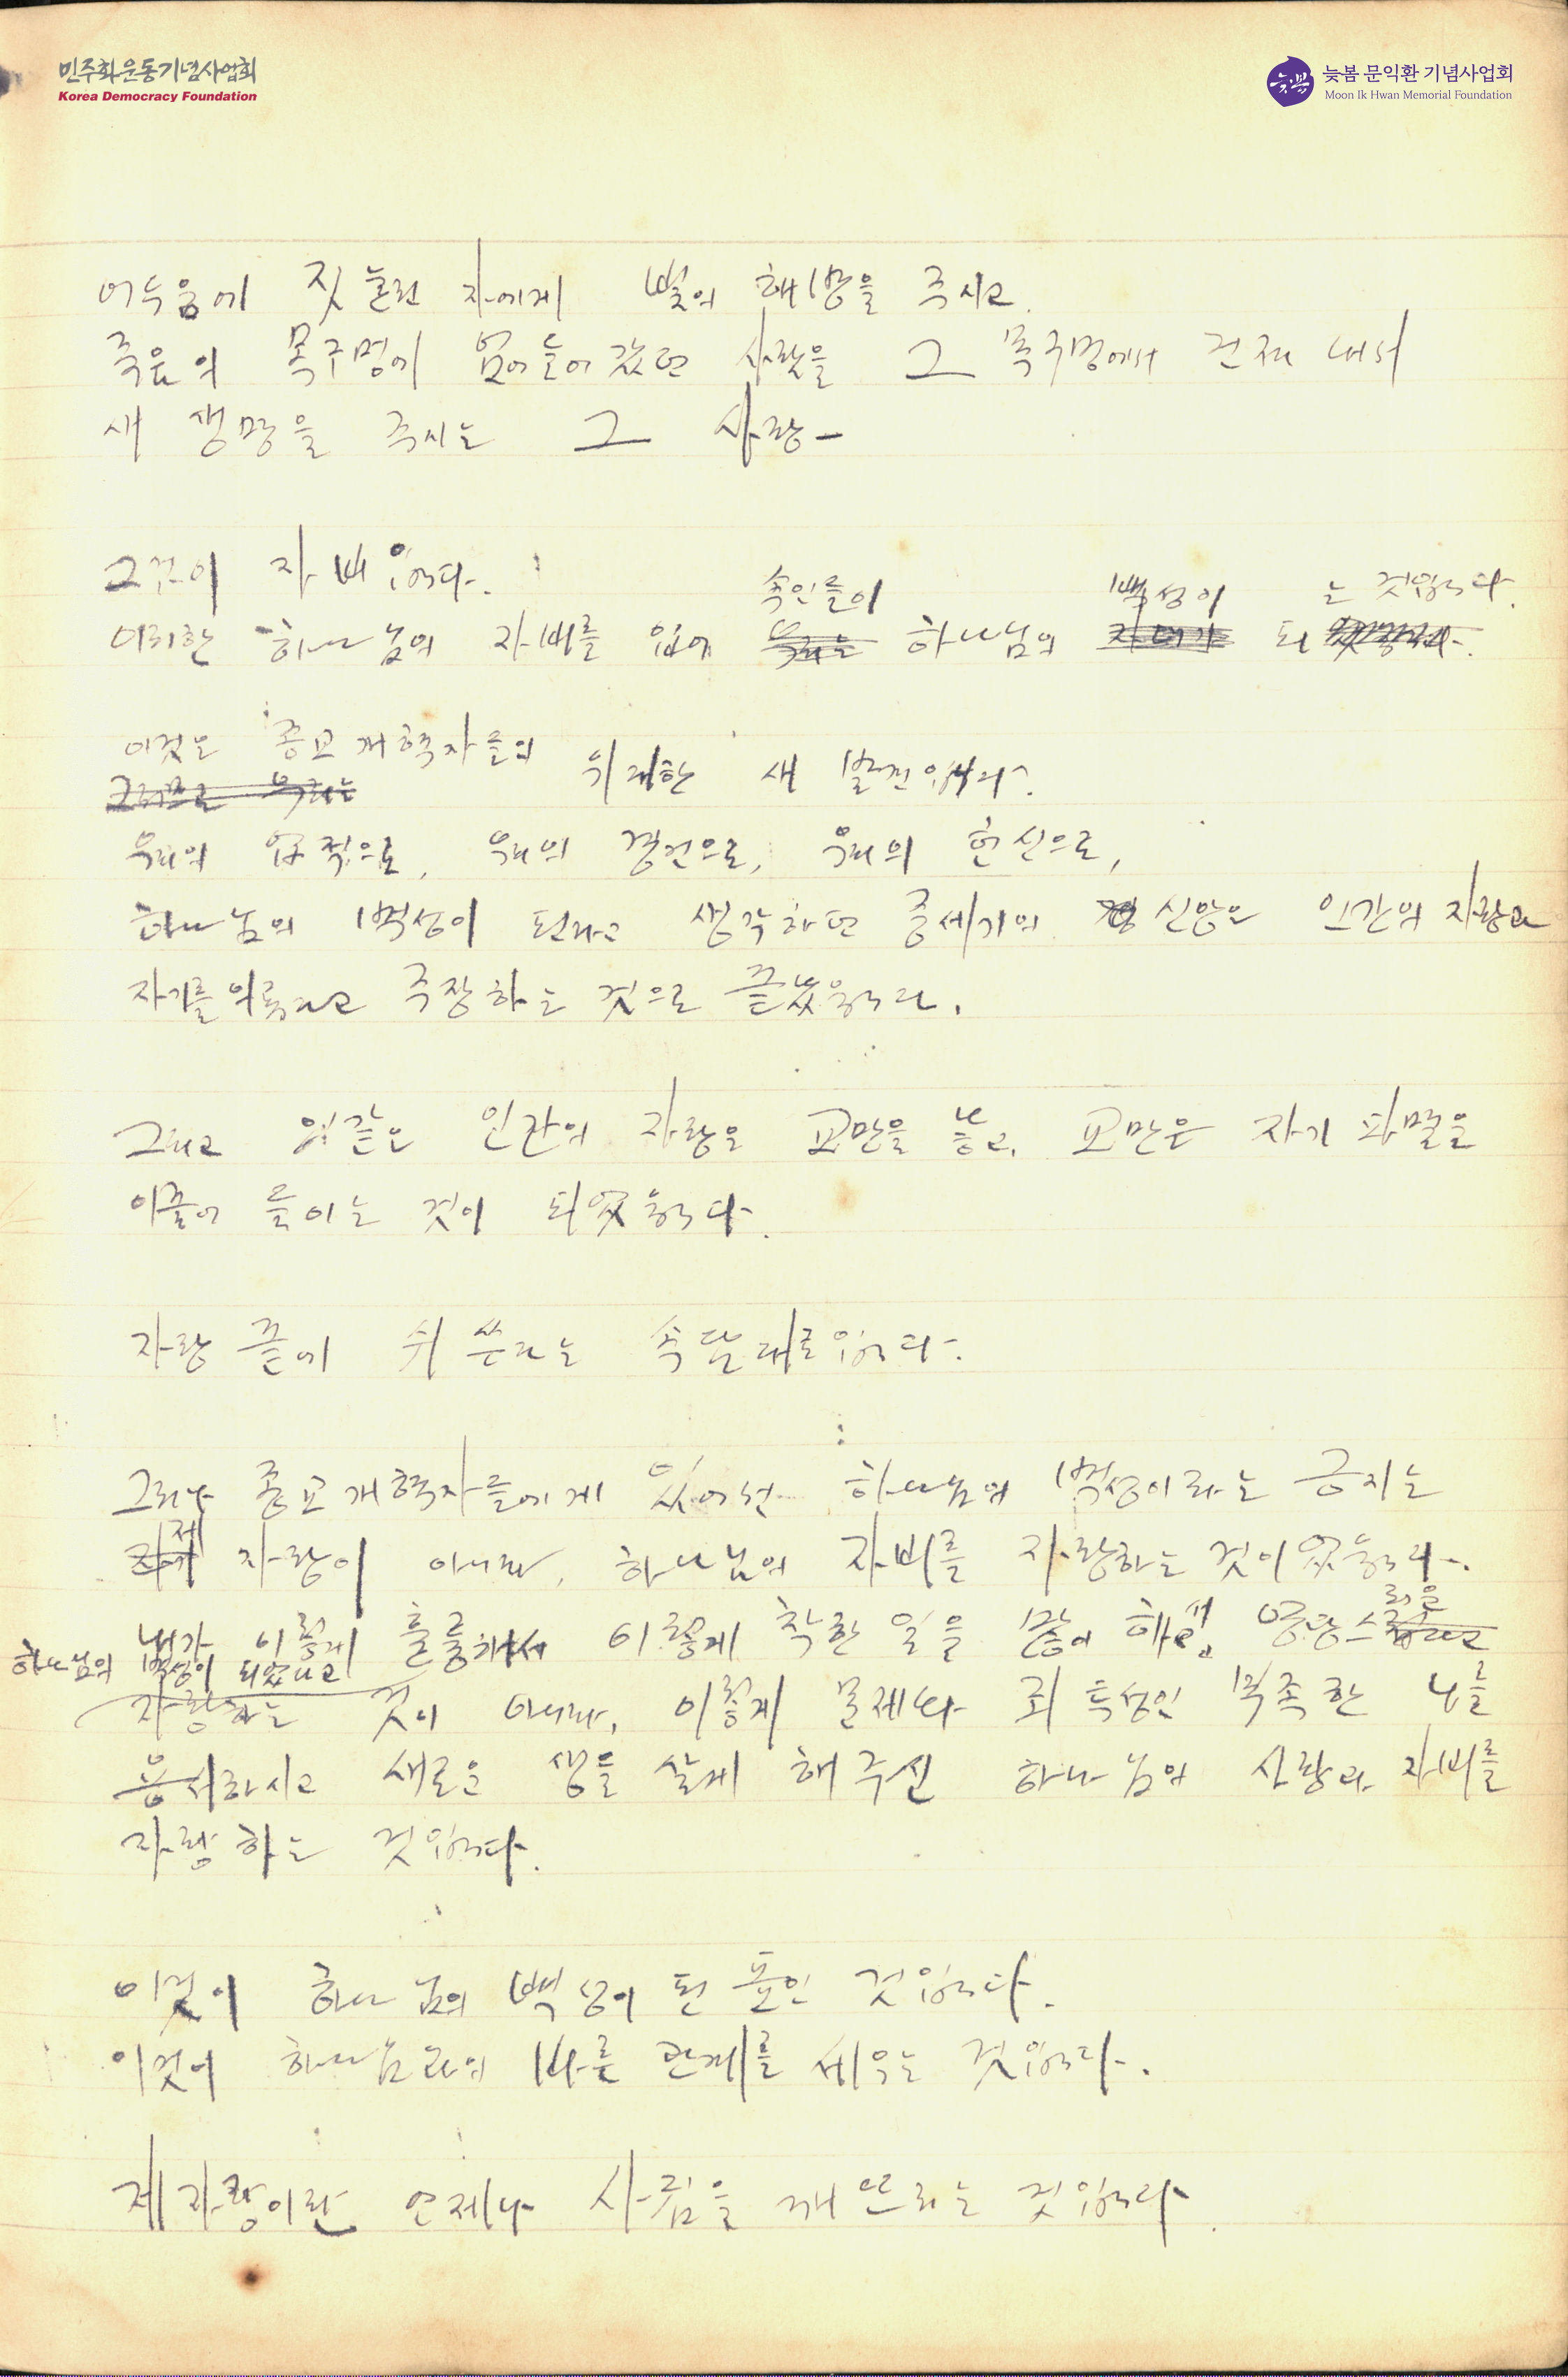 민주화운동기념사업회
Korea Democracy Foundation
늦봄 문익환 기념사업회
Moon Ik Hwan Memorial Foundation
어두움에 짓눌린 자에게 빛의 해방을 주시고.
죽음의 목구멍에 넘어들어갔던 사람을 그 목구멍에서 건져내서
새 생명을 주시는 그 사랑—
그것이 자비입니다.
속인들이 백성이 는 것입니다.
이러한 하나님의 자비를 입어 우리는 하나님의 자녀가 되
이것은 종교개혁자들의
위대한 새 발견입니다.
그러므로 우리는
우리의 업적으로, 우리의 경건으로, 우리의 헌신으로,
하나님의 백성이 된다고 생각하던 중세기의 신앙은 인간의 자랑과
자기를 의롭다고 주장하는 것으로 끝났읍니다.
그리고 이같은 인간의 자랑은 교만을 낳고, 교만은 자기 파멸을
이끌어 들이는 것이 되었읍니다.
자랑 끝에 쉬 쓴다는 속담대로입니다.
그러나 종교개혁자들에게 있어선 하나님의 백성이라는 긍지는
제
자랑이 아니라, 하나님의 자비를 자랑하는 것이었읍니다.
내가 이렇게 훌륭해서 이렇게 착한 일을 많이 해서 영광스
하나님의 백성이 되었다고
자랑하는 것이 아니라, 이렇게 문제다 죄 투성인 부족한 나를
용서하시고 새로운 생을 살게 해주신 하나님의 사랑과 자비를
자랑하는 것입니다.
이것이 하나님의 백성이 된 표인 것입니다.
이것이 하나님과의 바른 관계를 세우는 것입니다.
제자랑이란 언제나 사귐을 깨뜨리는 것입니다.